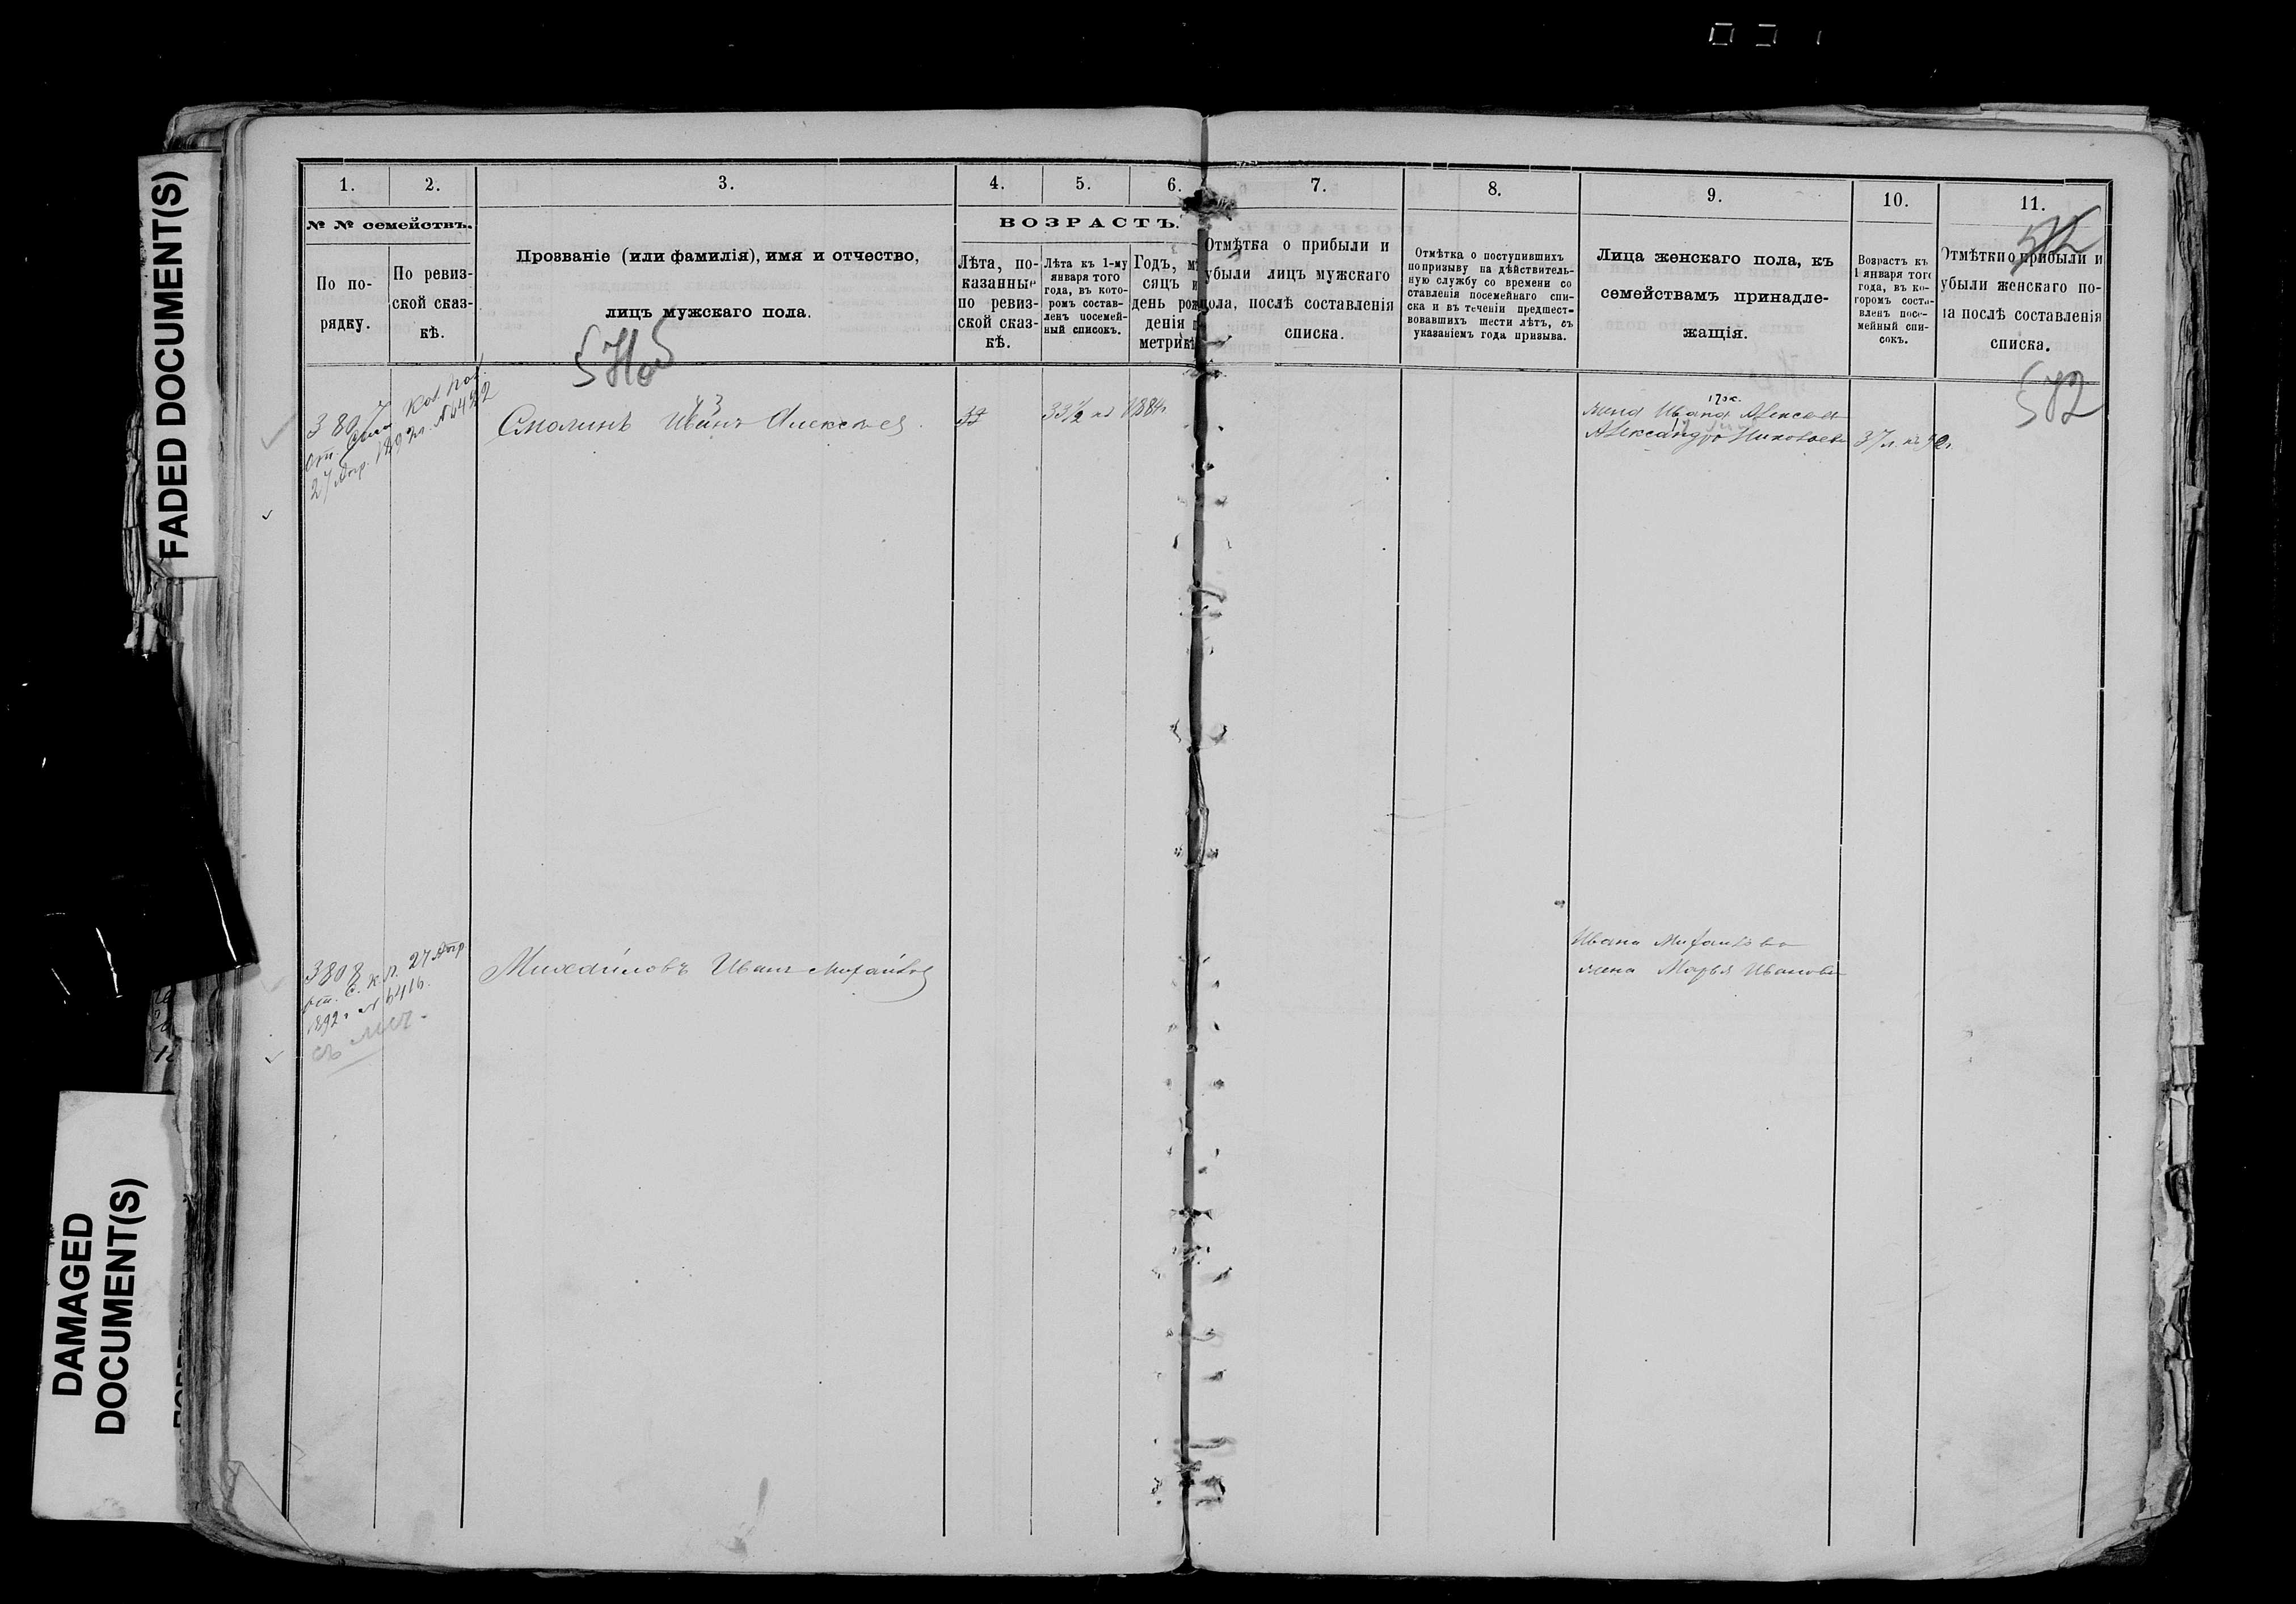 FADED DOCUMENT(S)
DAMAGED
DOCUMENT(S)
1.
2.
3.
4.
5.
6.
7.
8.
9.
10.
11.
№ № семействъ.
По по-
рядку.
По ревиз-
ской сказ-
кѣ.
Прозваніе (или фамилія), имя и отчество,
лицъ мужскаго пола.
ВОЗРАСТЪ.
Лѣта, по-
казанные
по ревиз-
ской сказ-
кѣ.
Лѣта къ 1-му
января того
года, въ кото-
ромъ состав-
ленъ посемей-
ный списокъ.
Годъ, мѣ
сяцъ и
день рож
денія п
метрикѣ
Отмѣтка о прибыли и
убыли лицъ мужскаго
пола, послѣ составленія
списка.
Отмѣтка о поступившихъ
по призыву на дѣйствитель-
ную службу со времени со
ставленія посемейнаго спи-
ска и въ теченіи предшест-
вовавшихъ шести лѣтъ, съ
указаніемъ года призыва.
Лица женскаго пола, къ
семействамъ принадле-
жащія.
Возрастъ къ
1 января того
года, въ ко-
торомъ соста-
вленъ посе-
мейный спи-
сокъ.
Отмѣтки о прибыли и
убыли женскаго по-
ла послѣ составленія
списка.
572
3807
27 Апр. 1892 г. №
43
Смолинъ Иванъ Алексѣев
33 1/2 къ 1884 г
жена Ивана Алексѣев
Александра Николаев
37 л. къ 92 г.
3808
от. С. К. П. 27 Апр.
1892 г №6416.
Михайловъ Иванъ Михайлов
Ивана Михайлова
жена Марья Иванова